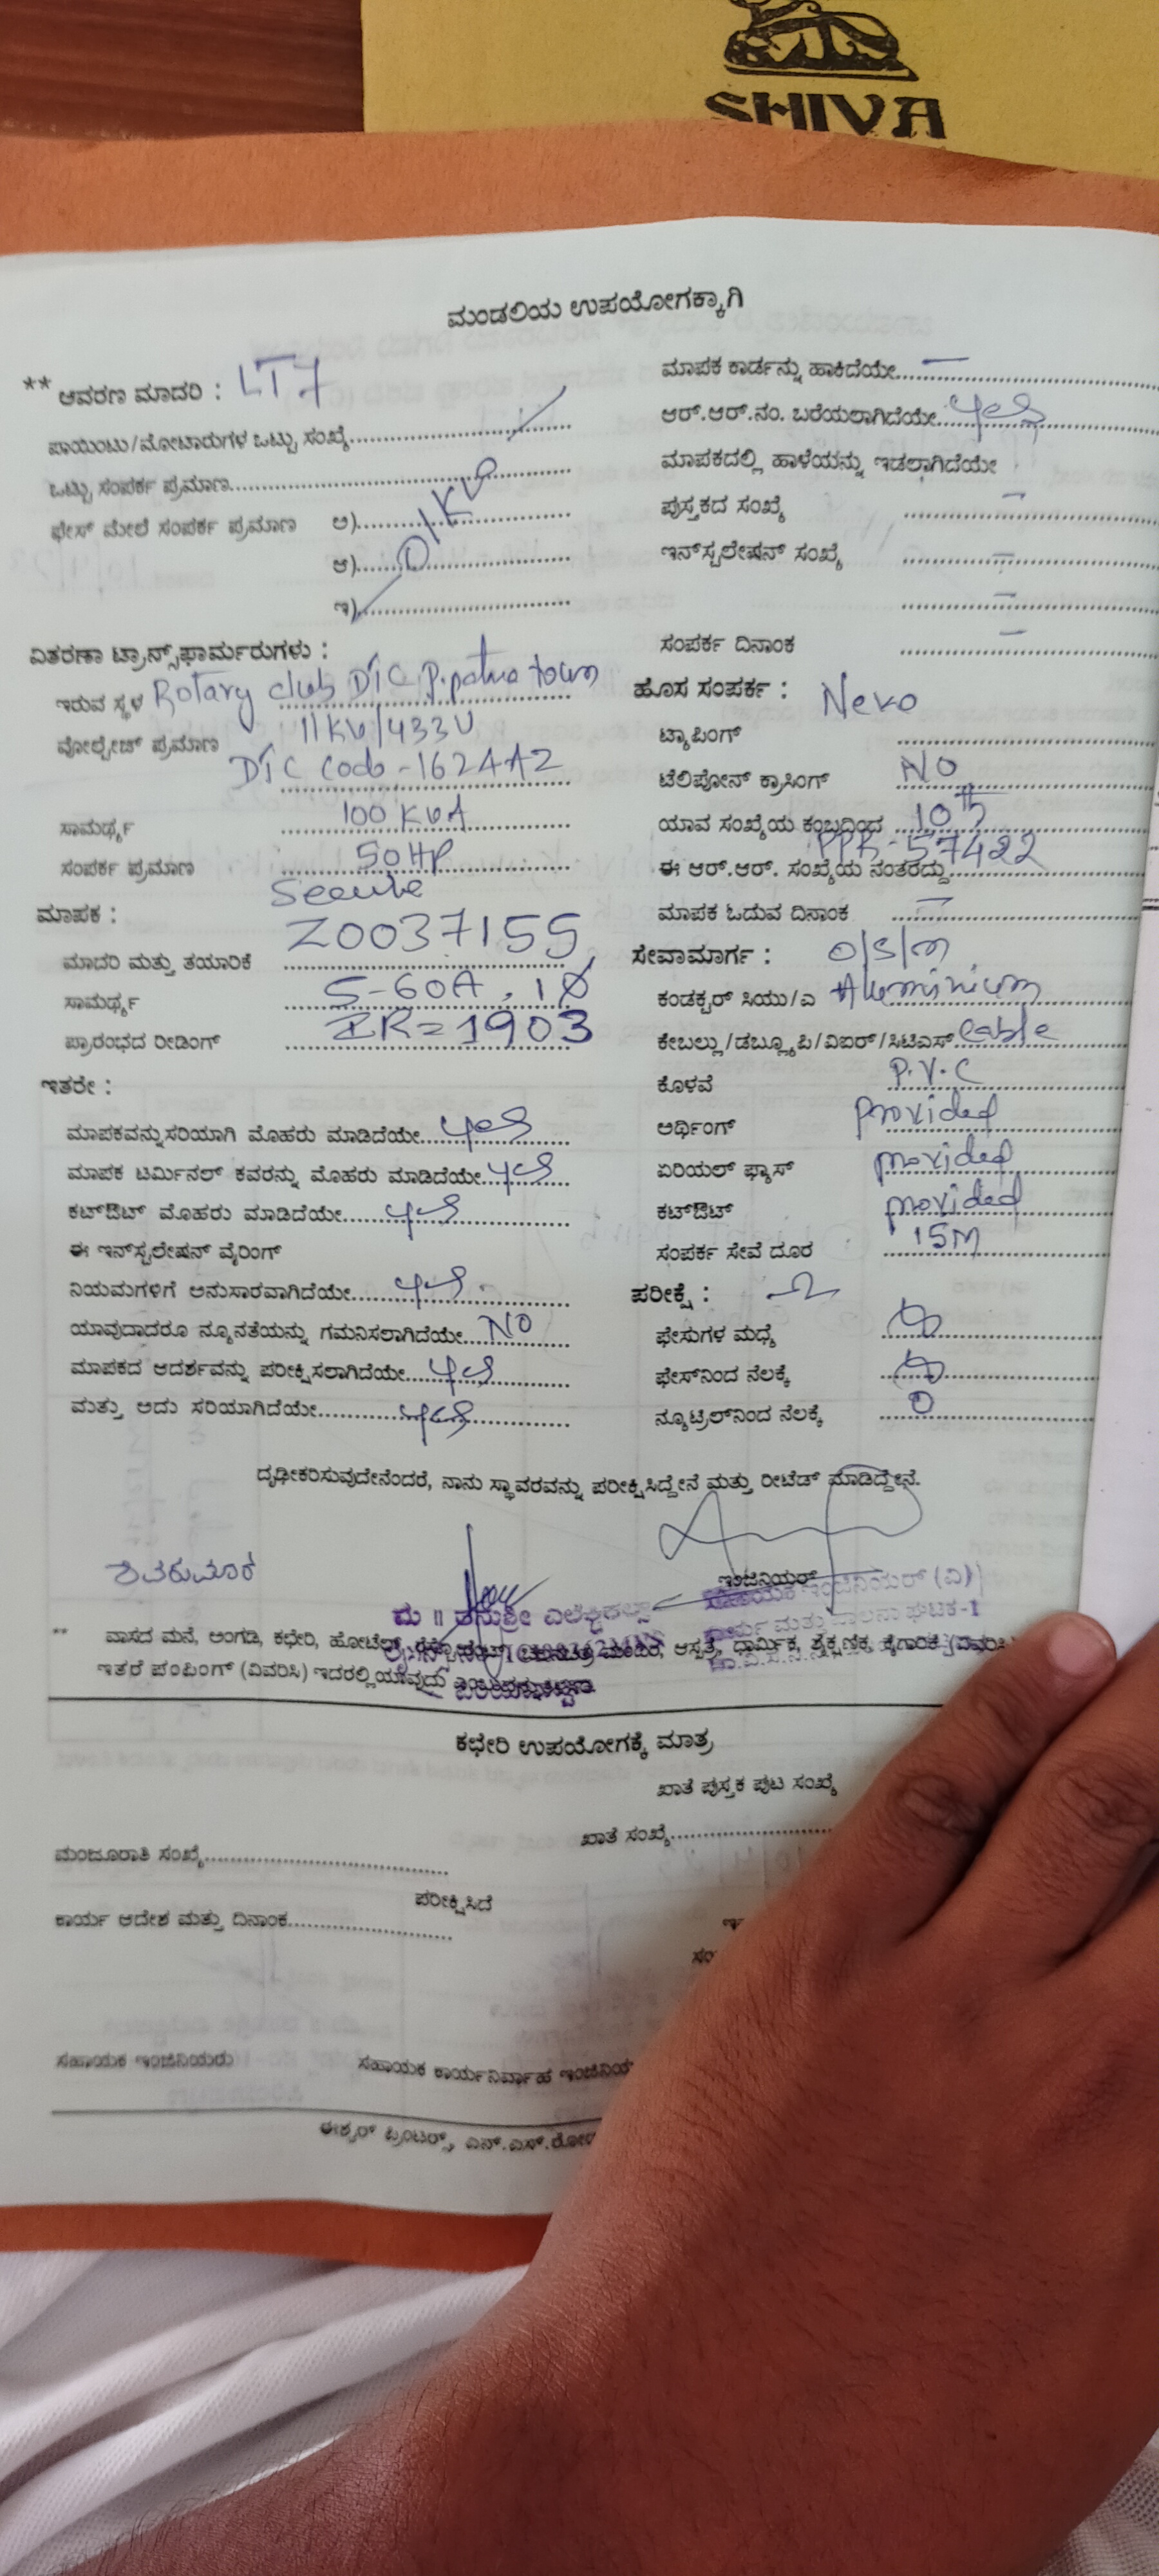 SHIVA
ಮಂಡಲಿಯ ಉಪಯೋಗಕ್ಕಾಗಿ
** ಆವರಣ ಮಾದರಿ : LT7
ಪಾಯಿಂಟು/ಮೋಟಾರುಗಳ ಒಟ್ಟು ಸಂಖ್ಯೆ
ಒಟ್ಟು ಸಂಪರ್ಕ ಪ್ರಮಾಣ
ಫೇಸ್ ಮೇಲೆ ಸಂಪರ್ಕ ಪ್ರಮಾಣ ಅ)
ಆ)
ಇ)
ವಿತರಣಾ ಟ್ರಾನ್ಸ್‌ಫಾರ್ಮರುಗಳು :
ಇರುವ ಸ್ಥಳ Rotary club DTC P.patna town
ವೋಲ್ಟೇಜ್ ಪ್ರಮಾಣ 11KV/433V
DTC Code-1624A2
ಸಾಮರ್ಥ್ಯ 100 KVA
ಸಂಪರ್ಕ ಪ್ರಮಾಣ 50HP
ಮಾಪಕ : Secure
Z0037155
ಮಾದರಿ ಮತ್ತು ತಯಾರಿಕೆ
ಸಾಮರ್ಥ್ಯ 5-60A, 1Ø
ಪ್ರಾರಂಭದ ರೀಡಿಂಗ್ IR=1903
ಇತರೇ :
ಮಾಪಕವನ್ನು ಸರಿಯಾಗಿ ಮೊಹರು ಮಾಡಿದೆಯೇ Yes
ಮಾಪಕ ಟರ್ಮಿನಲ್ ಕವರನ್ನು ಮೊಹರು ಮಾಡಿದೆಯೇ Yes
ಕಟ್‌ಔಟ್ ಮೊಹರು ಮಾಡಿದೆಯೇ Yes
ಈ ಇನ್‌ಸ್ಟಲೇಷನ್ ವೈರಿಂಗ್
ನಿಯಮಗಳಿಗೆ ಅನುಸಾರವಾಗಿದೆಯೇ Yes
ಯಾವುದಾದರೂ ನ್ಯೂನತೆಯನ್ನು ಗಮನಿಸಲಾಗಿದೆಯೇ NO
ಮಾಪಕದ ಆದರ್ಶವನ್ನು ಪರೀಕ್ಷಿಸಲಾಗಿದೆಯೇ Yes
ಮತ್ತು ಅದು ಸರಿಯಾಗಿದೆಯೇ Yes
ಮಾಪಕ ಕಾರ್ಡನ್ನು ಹಾಕಿದೆಯೇ —
ಆರ್.ಆರ್.ನಂ. ಬರೆಯಲಾಗಿದೆಯೇ Yes
ಮಾಪಕದಲ್ಲಿ ಹಾಳೆಯನ್ನು ಇಡಲಾಗಿದೆಯೇ
ಪುಸ್ತಕದ ಸಂಖ್ಯೆ —
ಇನ್‌ಸ್ಟಲೇಷನ್ ಸಂಖ್ಯೆ —
—
ಸಂಪರ್ಕ ದಿನಾಂಕ —
ಹೊಸ ಸಂಪರ್ಕ : New
ಟ್ಯಾಪಿಂಗ್
ಟೆಲಿಪೋನ್ ಕ್ರಾಸಿಂಗ್ NO
ಯಾವ ಸಂಖ್ಯೆಯ ಕಂಬದಿಂದ 10th
PPR-57422
ಈ ಆರ್.ಆರ್. ಸಂಖ್ಯೆಯ ನಂತರದ್ದು
ಮಾಪಕ ಓದುವ ದಿನಾಂಕ —
ಸೇವಾಮಾರ್ಗ : O/S/M
ಕಂಡಕ್ಟರ್ ಸಿಯು/ಎ Aluminium
ಕೇಬಲ್ಲು/ಡಬ್ಲ್ಯೂಪಿ/ವಿಐರ್/ಸಿಟಿಎಸ್ Cable
ಕೊಳವೆ P.V.C
ಅರ್ಥಿಂಗ್ provided
ಏರಿಯಲ್ ಫ್ಯೂಸ್ provided
ಕಟ್‌ಔಟ್ provided
ಸಂಪರ್ಕ ಸೇವೆ ದೂರ 15M
ಪರೀಕ್ಷೆ : Ω
ಫೇಸುಗಳ ಮಧ್ಯೆ
ಫೇಸ್‌ನಿಂದ ನೆಲಕ್ಕೆ
ನ್ಯೂಟ್ರಲ್‌ನಿಂದ ನೆಲಕ್ಕೆ 0
ದೃಢೀಕರಿಸುವುದೇನೆಂದರೆ, ನಾನು ಸ್ಥಾವರವನ್ನು ಪರೀಕ್ಷಿಸಿದ್ದೇನೆ ಮತ್ತು ರೀಟೆಡ್ ಮಾಡಿದ್ದೇನೆ.
ಶಿವಕುಮಾರ
ಇಂಜಿನಿಯರ್
** ವಾಸದ ಮನೆ, ಅಂಗಡಿ, ಕಛೇರಿ, ಹೋಟೆಲ್, ಆಸ್ಪತ್ರೆ, ಧಾರ್ಮಿಕ, ಶೈಕ್ಷಣಿಕ, ಕೈಗಾರಿಕೆ (ವಿವರಿಸಿ)
ಇತರೆ ಪಂಪಿಂಗ್ (ವಿವರಿಸಿ) ಇದರಲ್ಲಿ ಯಾವುದು
ಕಛೇರಿ ಉಪಯೋಗಕ್ಕೆ ಮಾತ್ರ
ಖಾತೆ ಪುಸ್ತಕ ಪುಟ ಸಂಖ್ಯೆ
ಖಾತೆ ಸಂಖ್ಯೆ
ಮಂಜೂರಾತಿ ಸಂಖ್ಯೆ
ಪರೀಕ್ಷಿಸಿದೆ
ಕಾರ್ಯ ಆದೇಶ ಮತ್ತು ದಿನಾಂಕ
ಸಹಾಯಕ ಇಂಜಿನಿಯರು ಸಹಾಯಕ ಕಾರ್ಯನಿರ್ವಾಹ ಇಂಜಿನಿಯ
ಈಶ್ವರ್ ಪ್ರಿಂಟರ್ಸ್, ಎನ್.ಎಸ್.ರೋ